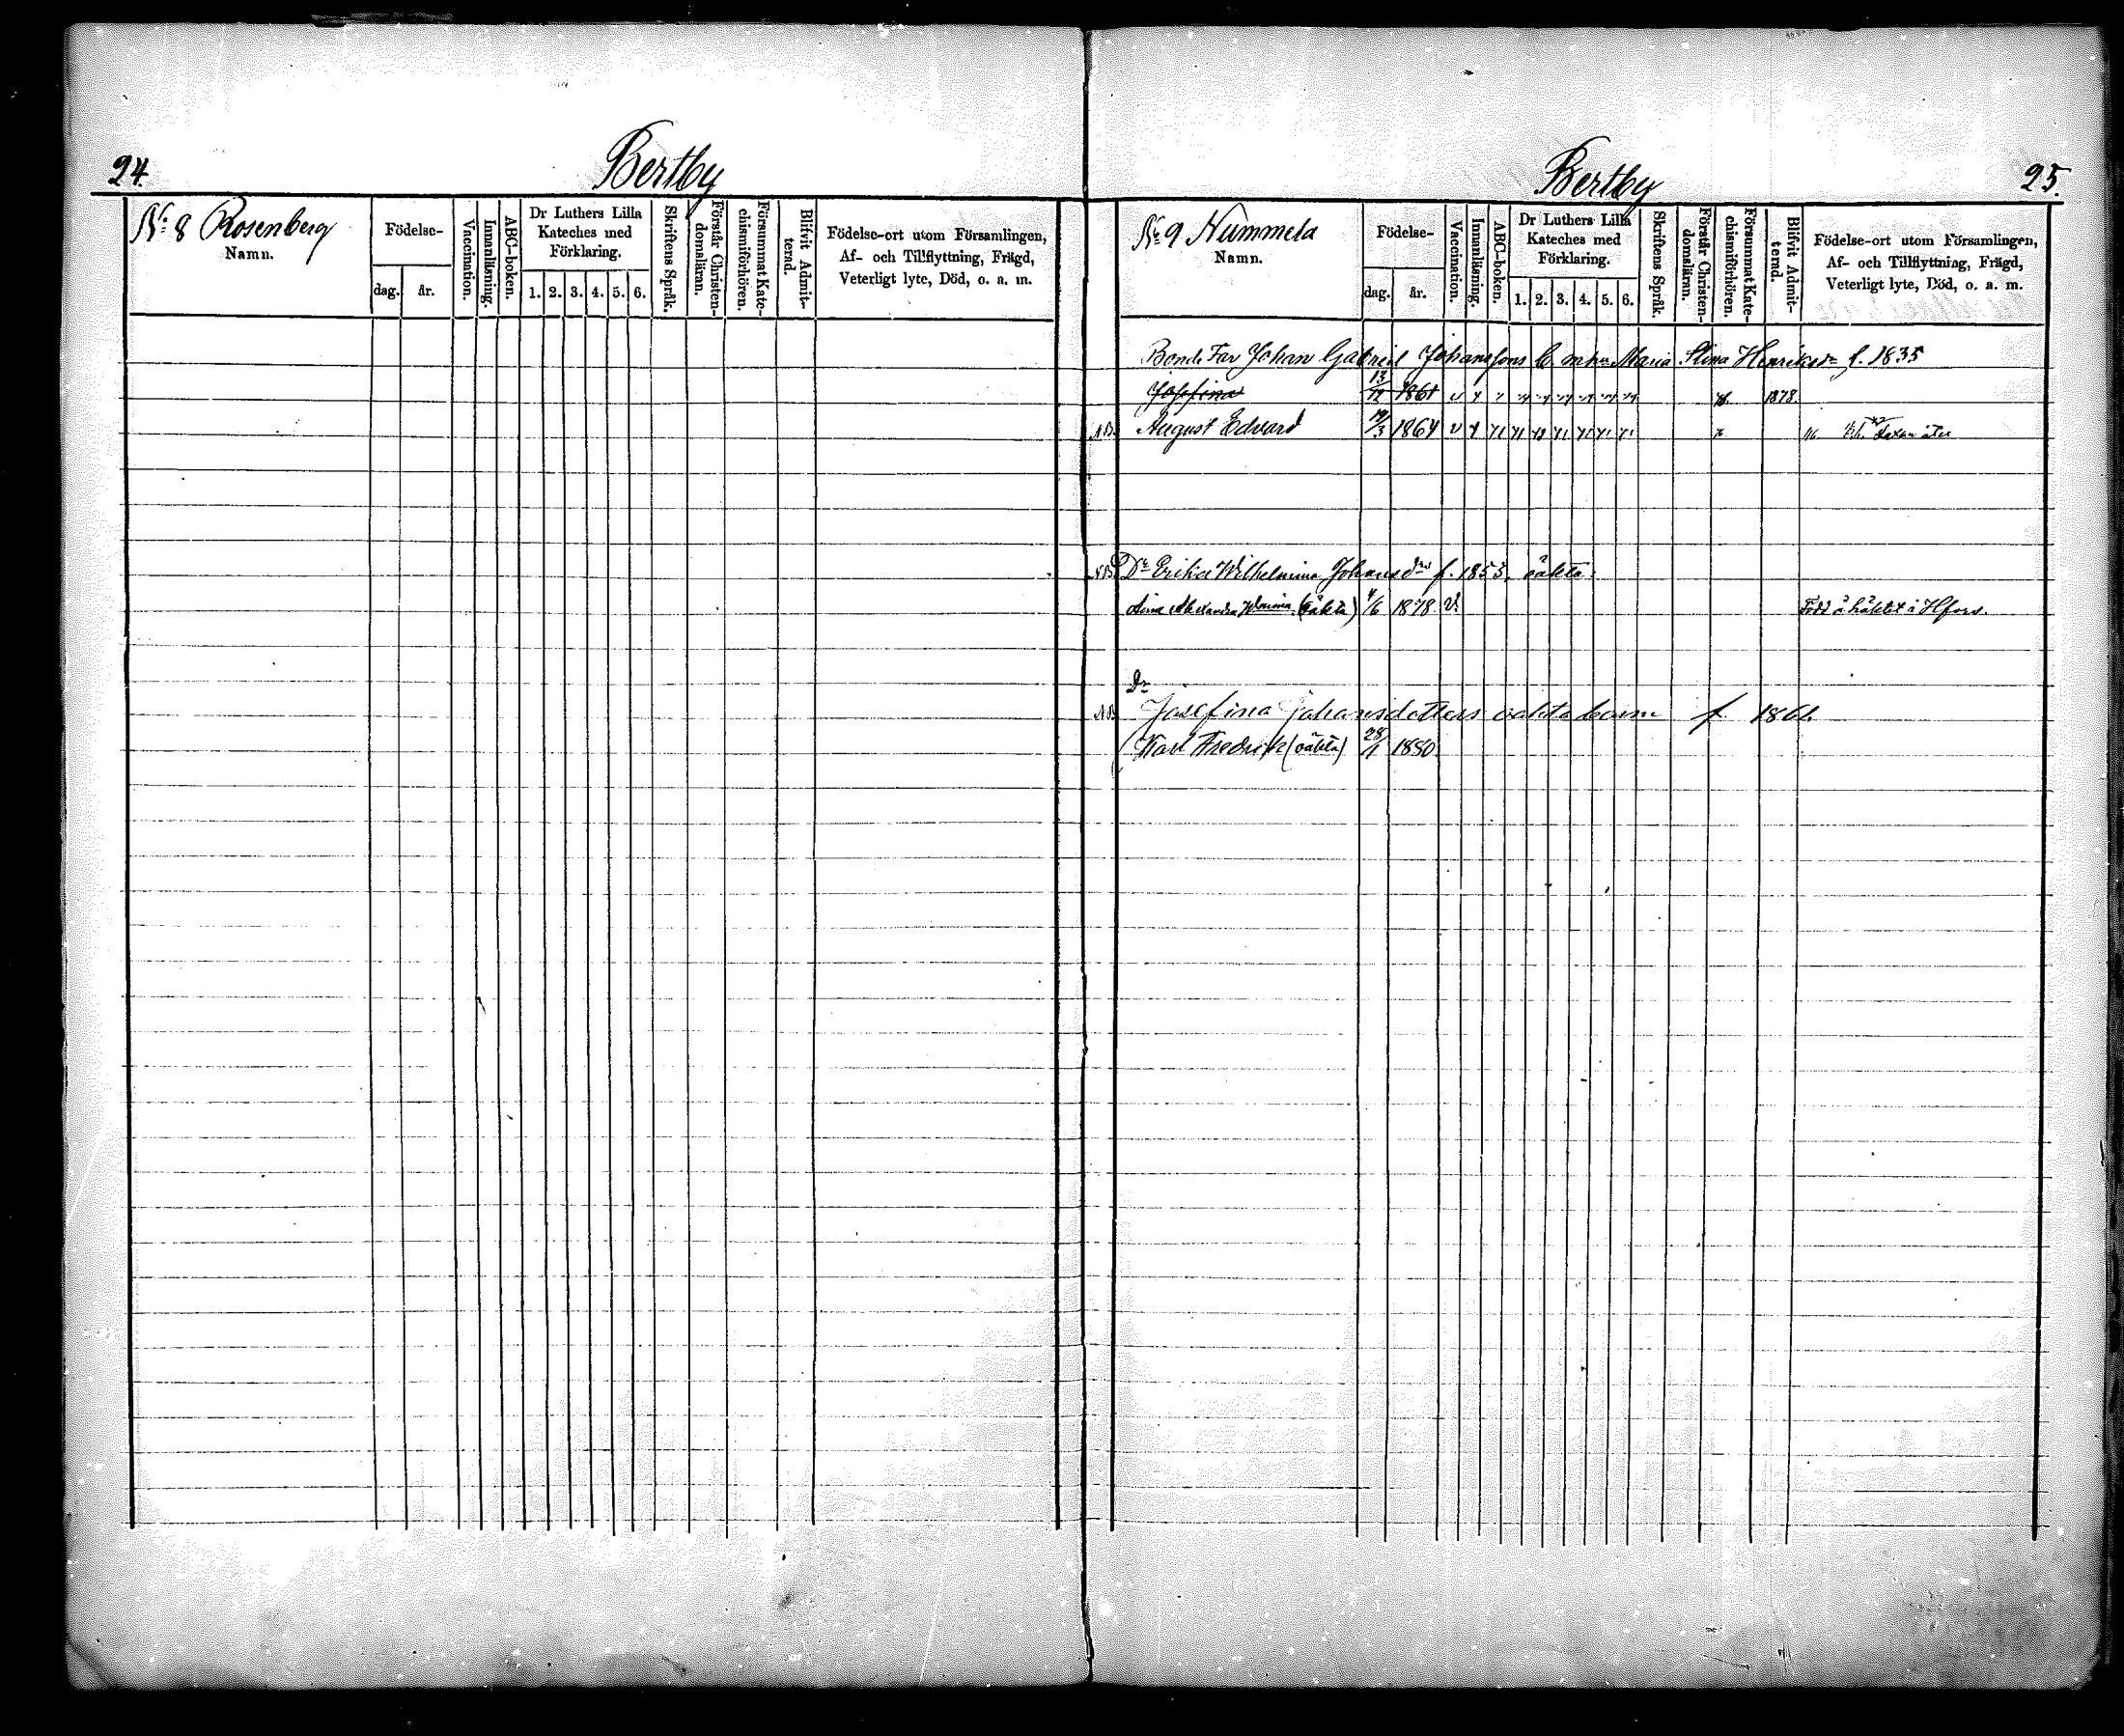 24.
Bertby
No 8 Rosenberg
Namn.
Födelse-
dag. år.
Vaccination.
Innanläsning.
ABC-boken.
Dr Luthers Lilla
Kateches med
Förklaring.
1. 2. 3. 4. 5. 6.
Skriftens Språk.
Förstår Christen-
domsläran.
Försummat Kate-
chismiförhören.
Blifvit Admit-
terad.
Födelse-ort utom Församlingen,
Af- och Tillflyttning, Frägd,
Veterligt lyte, Död, o. a. m.
Bertby
25.
No 9 Nummela
Namn.
Födelse-
dag. år.
Vaccination.
Innanläsning.
ABC-boken.
Dr Luthers Lilla
Kateches med
Förklaring.
1. 2. 3. 4. 5. 6.
Skriftens Språk.
Förstår Christen-
domsläran.
Försummat Kate-
chismiförhören.
Blifvit Admit-
terad.
Födelse-ort utom Församlingen,
Af- och Tillflyttning, Frägd,
Veterligt lyte, Död, o. a. m.
Bonde Far Johan Gabriel Johanssons Maria Stina Henriksdr f. 1835
Josefina 13/12 1861 v 1878.
NB. August Edvard 19/3 1864 v
NB. Dr Erika Wilhelmina Johansdrs f. 1853. oäkta:
Alexandra (oäkta) 4/6 1878 v. Född å häktet i Hfors.
Dr
NB. Josefina Johansdotters oäkta barn f. 1861.
Karl Fredrik (oäkta) 28/1 1880.